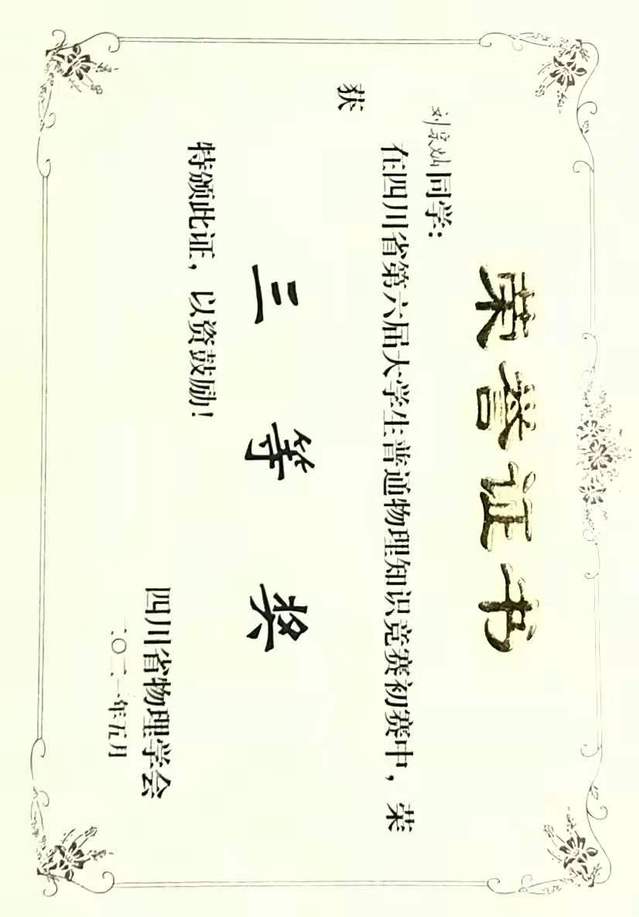 荣誉证书
刘京灿同学:
在四川省第六届大学生普通物理知识竞赛初赛中，荣
获
三等奖
特颁此证，以资鼓励！
四川省物理学会
二〇二一年五月